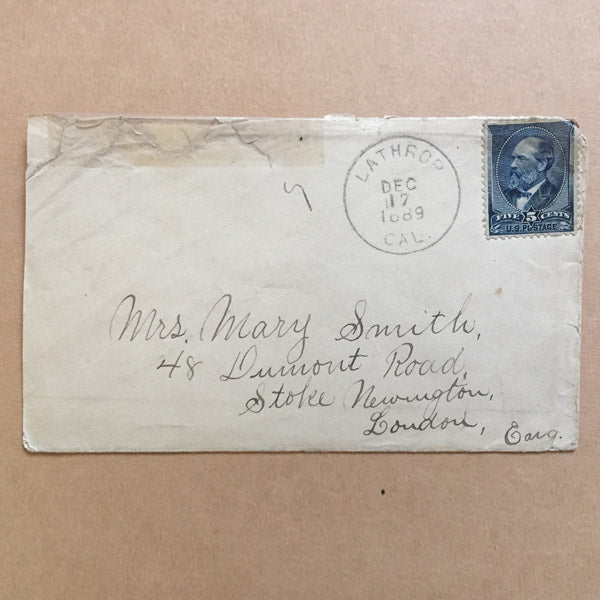 LATHROP
DEC
17
1889
CAL.
FIVE 5 CENTS
U.S. POSTAGE
Mrs. Mary Smith,
48 Dumont Road,
Stoke Newington,
London, Eang.